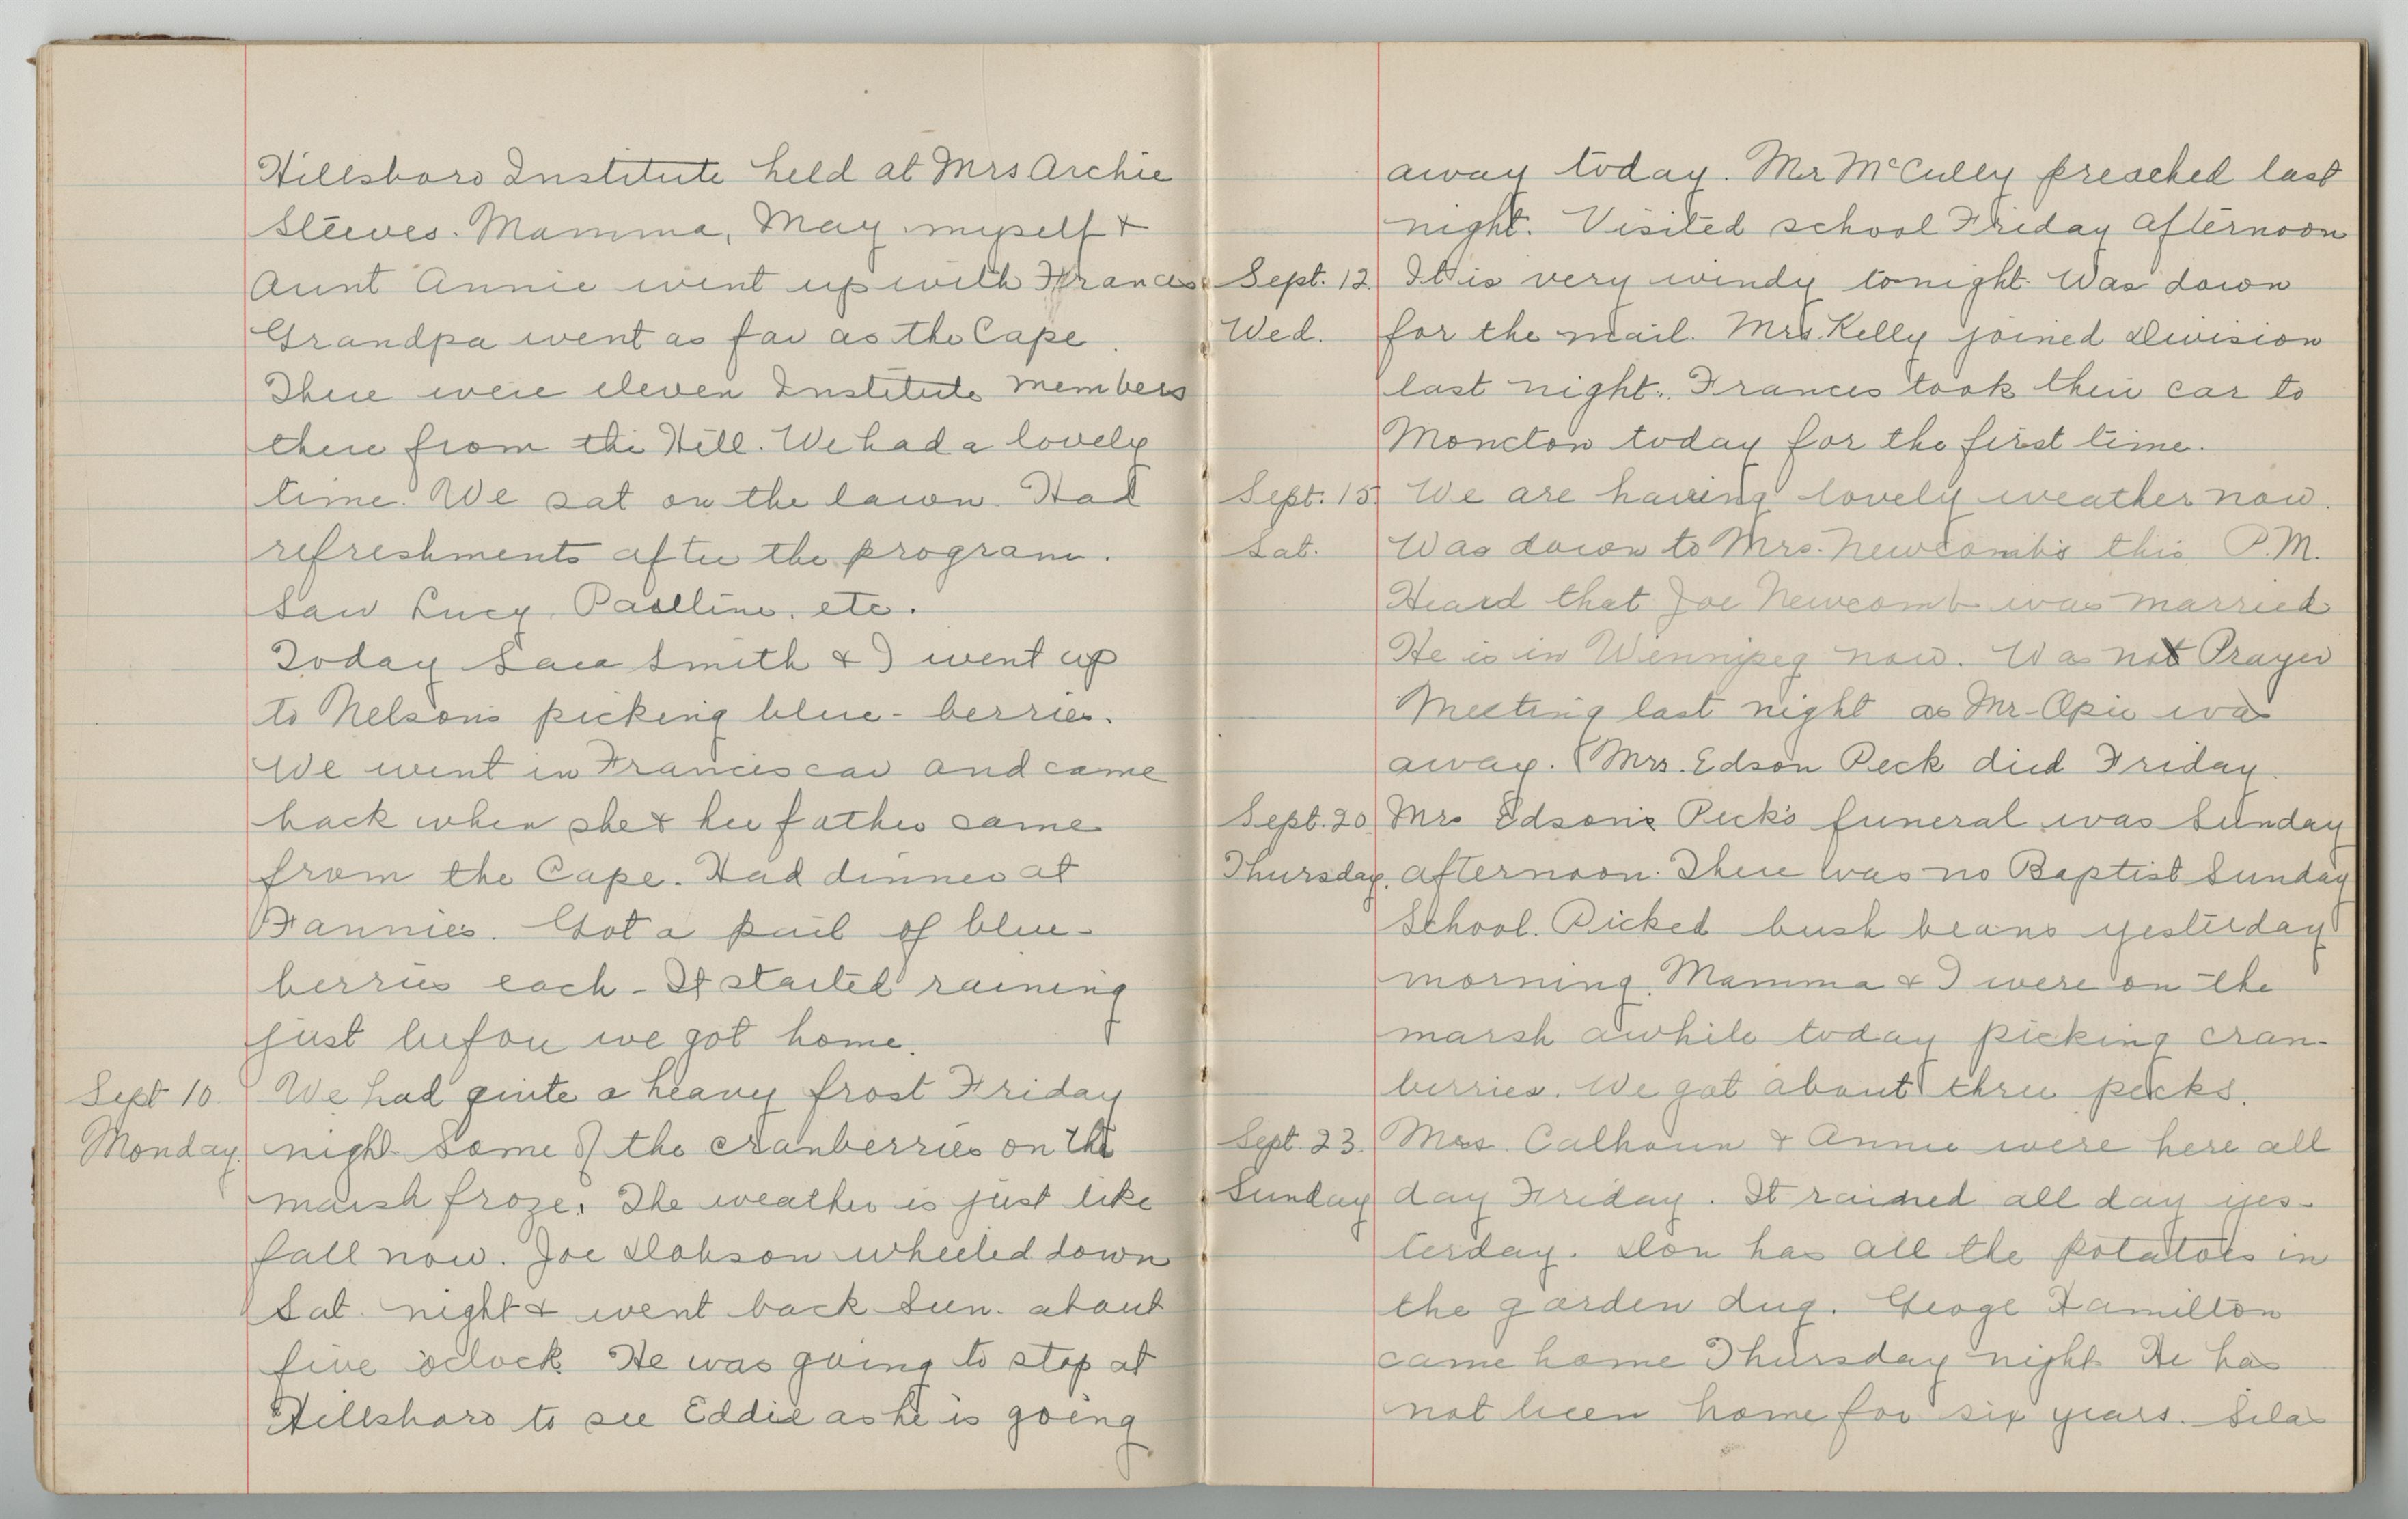 Hillsboro Institute held at Mrs Archie
Steeves. Mamma, May myself &
Aunt Annie went up with Frances
Grandpa went as far as the Cape.
There were eleven Institute members
there from the Hill. We had a lovely
time. We sat on the lawn. Had
refreshments after the program.
Saw Lucy, Paulline, etc.
Today Sara Smith & I went up
to Nelson's picking blue-berries.
We went in Frances car and came
back when she & her father came
from the Cape. Had dinner at
Fannie's. Got a pail of blue-
berries each - It started raining
just before we got home.
Sept 10. We had quite a heavy frost Friday
Monday. night. Some of the cranberries on the
marsh froze. The weather is just like
fall now. Joe Dobson wheeled down
Sat. night & went back Sun. about
five o'clock. He was going to stop at
Hillsboro to see Eddie as he is going
away today. Mr McCully preached last
night. Visited school Friday afternoon
Sept. 12. It is very windy tonight. Was down
Wed. for the mail. Mrs. Kelly joined Division
last night. Frances took their car to
Moncton today for the first time.
Sept. 15. We are having lovely weather now.
Sat. Was down to Mrs. Newcomb's this P.M.
Heard that Joe Newcomb was married
He is in Winnipeg now. Was not Prayer
Meeting last night as Mr. Opie was
away. Mrs. Edson Peck died Friday.
Sept. 20. Mrs Edson's Peck's funeral was Sunday
Thursday. afternoon. There was no Baptist Sunday
School. Picked bush beans yesterday
morning. Mamma & I were on the
marsh awhile today picking cran-
berries. We got about three pecks.
Sept. 23. Mrs. Calhoun & Annie were here all
Sunday day Friday. It rained all day yes-
terday. Don has all the potatoes in
the garden dug. Geoge Hamilton
came home Thursday night. He has
not been home for six years. Silas